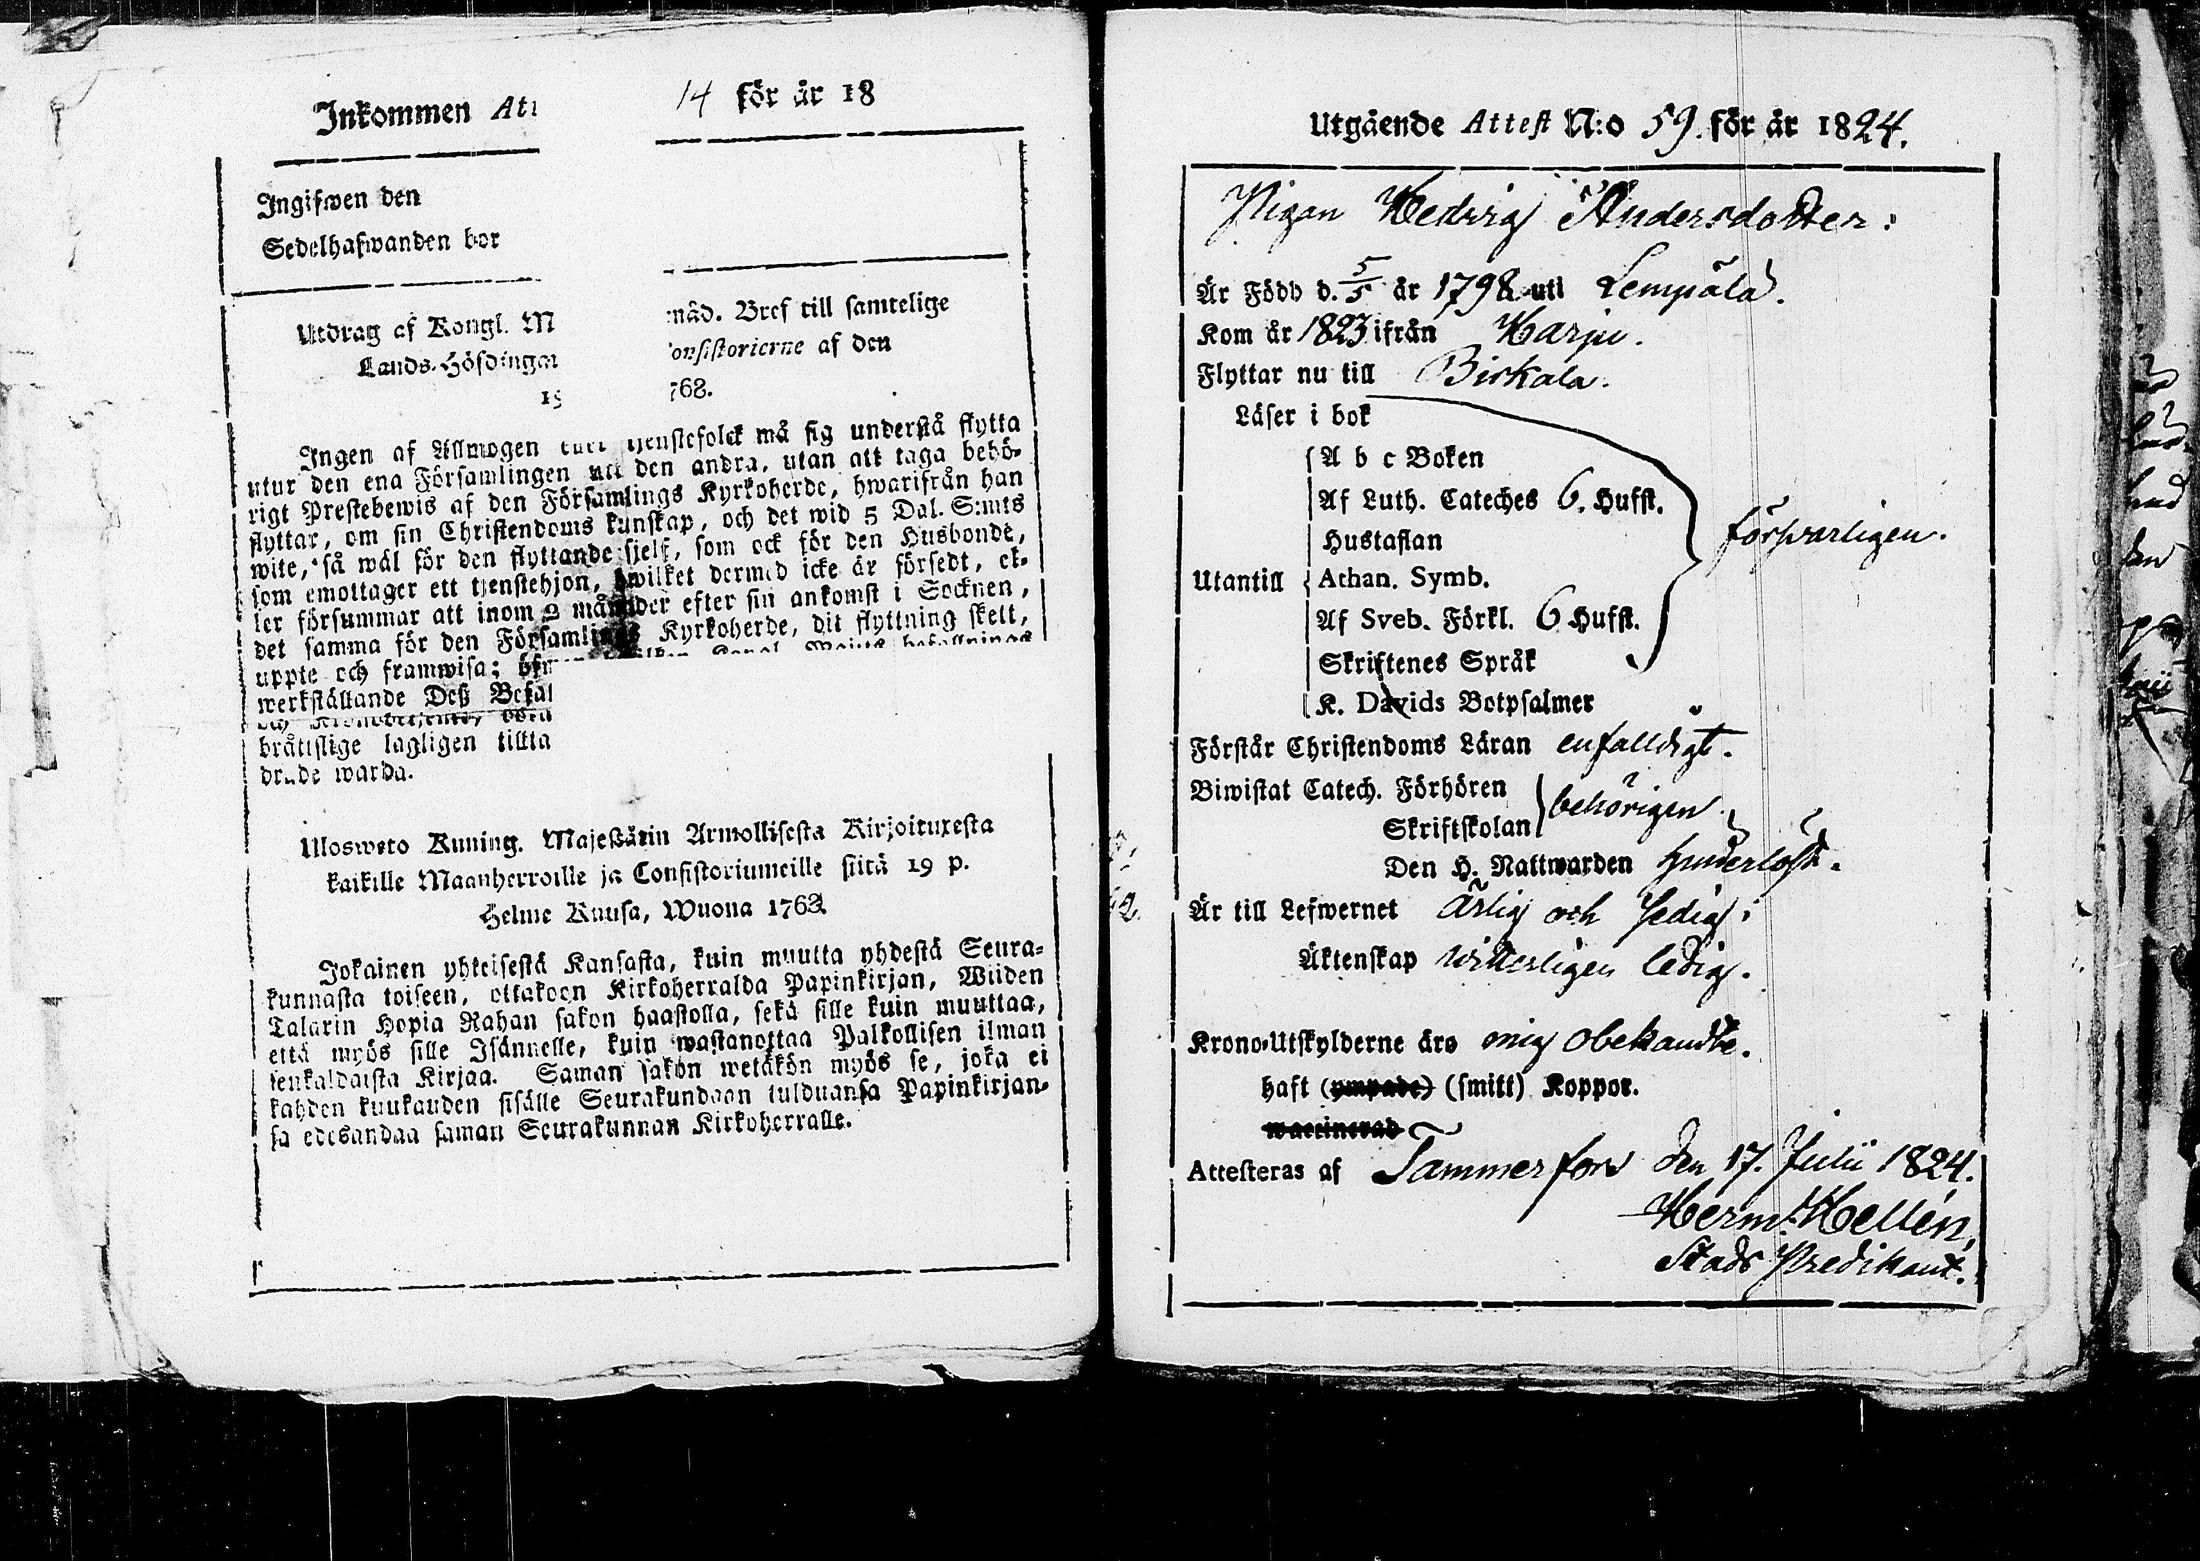 Inkommen 14 för är 18
Ingifwen den
Sedelhafwanden bor
Utdrag af Kongl. M nåd. Bref till samtelige
Lands-Höfdingar onsistorierne af den
19 768.
Ingen af Allmogen eller tjenstefolck må sig understå flytta
utur den ena Församlingen till den andra, utan att taga behö-
rigt Prestebewis af den Församlings Kyrkoherde, hwarifrån han
flyttar, om sin Christendoms kunskap, och det wid 5 Dal. S:mts
wite, så wäl för den flyttande sjelf, som ock för den Husbonde,
som emottager ett tjenstehjon, hwilket dermed icke är försedt, el-
ler försummar att inom 2 månader efter sin ankomst i Socknen,
det samma för den Församlings Kyrkoherde, dit flyttning skett,
uppte och framwisa;
werkställande Deß Befal
bråttslige lagligen tillta
drade warda.
Ulosweto Kuning. Majestätin Armollisesta Kirjoituxesta
kaikille Maanherroille ja Consistoriumeille siitä 19 p.
Helme Kuusa, Wuona 1768.
Jokainen yhteisestä Kansasta, kuin muutta yhdestä Seura-
kunnasta toiseen, ottakoon Kirkoherralda Papinkirjan, Wiiden
Talarin Hopia Rahan sakon haastolla, sekä sille kuin muuttaa,
että myös sille Isännelle, kuin wastanottaa Palkollisen ilman
senkaldaista Kirjaa. Saman sakon wetäkön myös se, joka ei
kahden kuukauden sisälle Seurakundaan tulduansa Papinkirjan-
sa edesandaa saman Seurakunnan Kirkoherralle.
Utgående Attest N:o 59. för är 1824.
Pigan Hedvig Andersdotter:
Är Född d. 5/5 är 1798 uti Lempälä.
Kom är 1823 ifrån Harju.
Flyttar nu till Birkala.
Läser i bok
A b c Boken
Af Luth. Cateches 6. Hufst.
Hustaflan
försvarligen.
Utantill Athan. Symb.
Af Sveb. Förkl. 6 Hufst.
Skriftenes Språk
K. Davids Botpsalmer
Förstår Christendoms Läran enfalldigt.
Biwistat Catech. Förhören
behörigen
Skriftskolan
Den H. Nattwarden hinderlöst.
Är till Lefwernet ärlig och sedig;
Äktenskap witterligen ledig.
Krono-Utskylderne äro mig obekandte.
haft (ympade) (smitt) Koppor.
waccinerad
Attesteras af Tammerfors den 17. Julii 1824.
Herm. Hellén,
Stads Predikant.